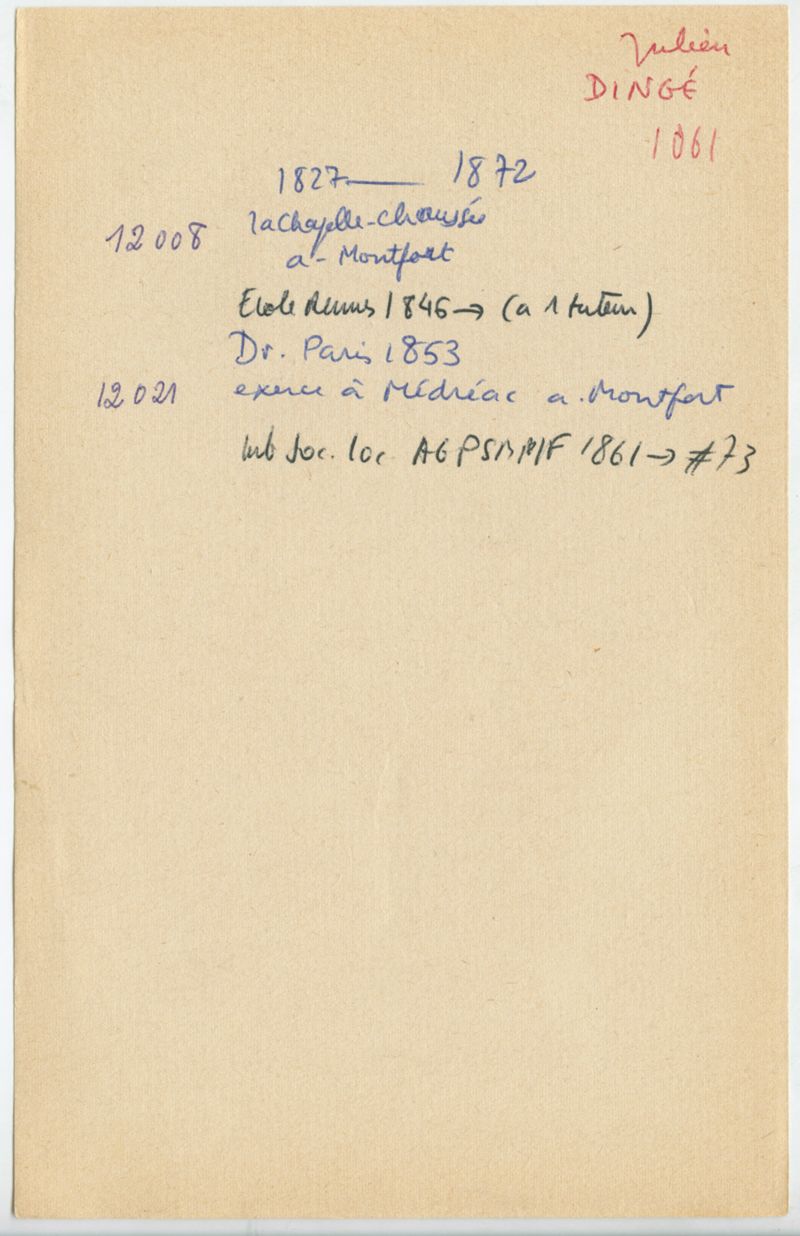 Julien
DINGÉ
1061
1827 — 1872
12008 la Chapelle-Chaussée
a - Montfort
Ecole Rennes 1846 → (a 1 tuteur)
Dr. Paris 1853
12021 exerce à Médréac a. Montfort
Soc. loc. 1861 → ≠ 73